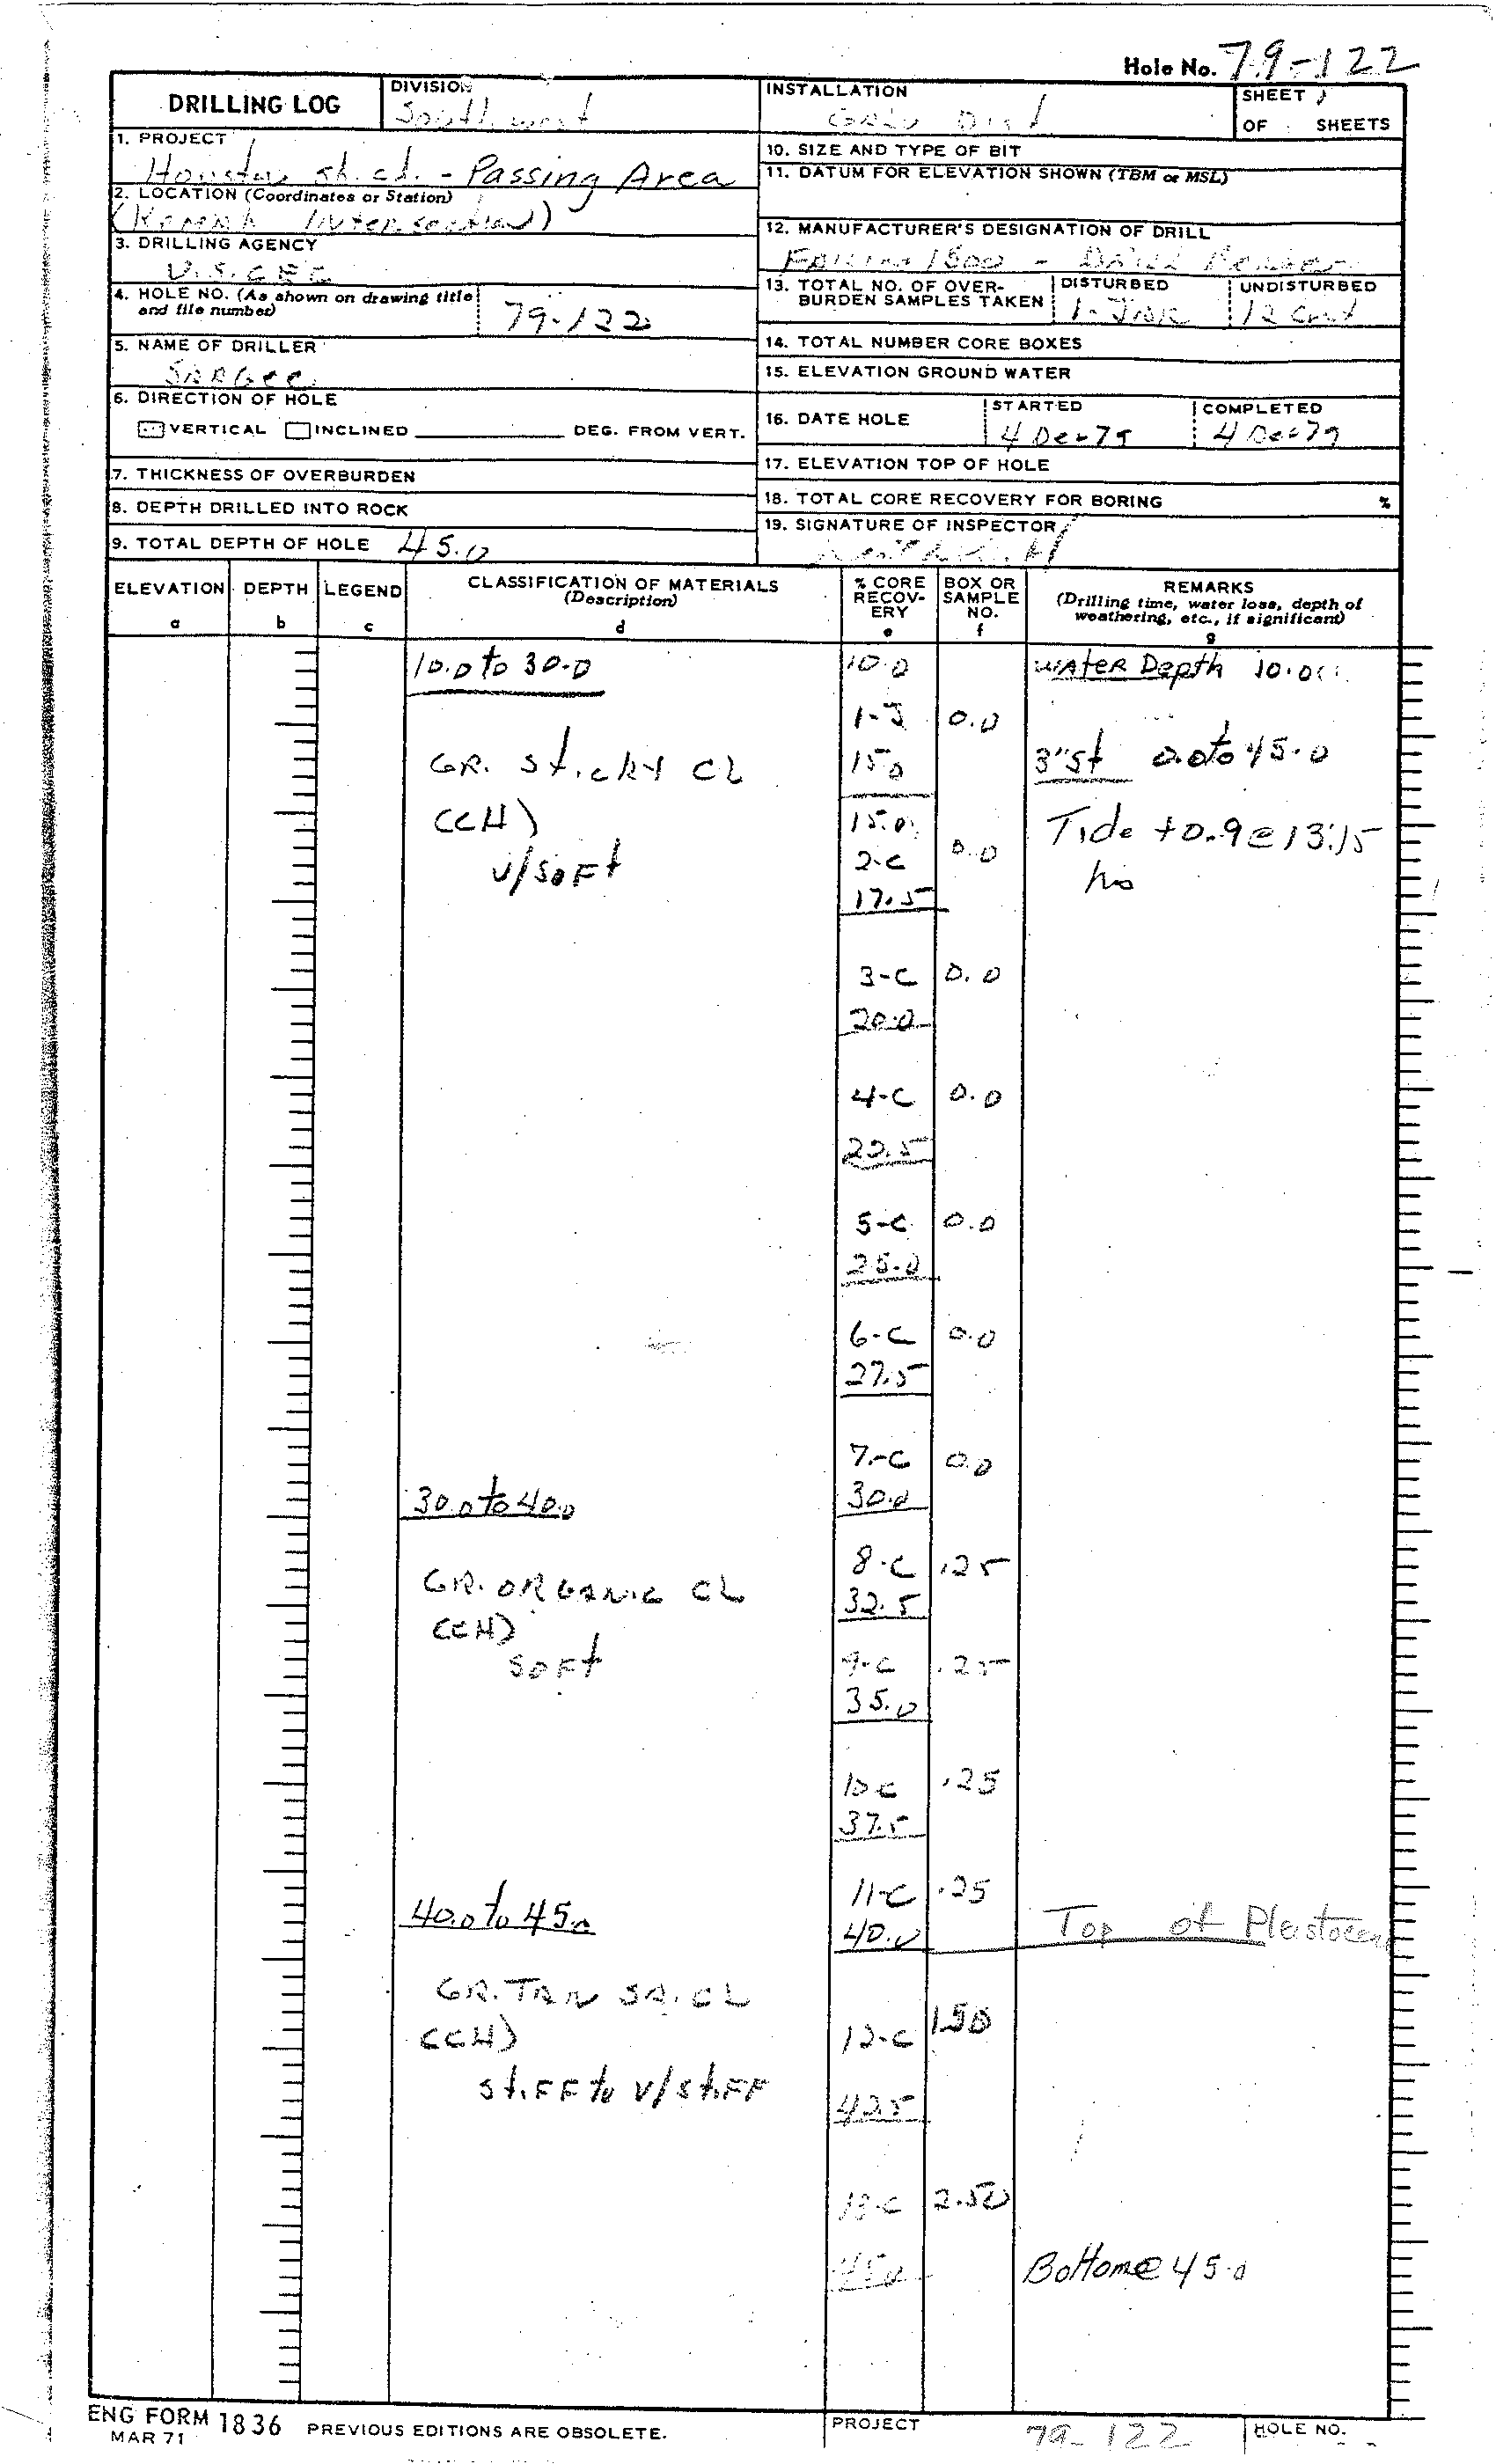 Hole No. 79-122
DRILLING LOG
DIVISION
Southwest
INSTALLATION
SHEET 1
OF SHEETS
1. PROJECT
Houston sh. ch. - Passing Area
2. LOCATION (Coordinates or Station)
Intersection)
3. DRILLING AGENCY
4. HOLE NO. (As shown on drawing title and file number)
79-122
5. NAME OF DRILLER
6. DIRECTION OF HOLE
VERTICAL INCLINED DEG. FROM VERT.
7. THICKNESS OF OVERBURDEN
8. DEPTH DRILLED INTO ROCK
9. TOTAL DEPTH OF HOLE 45.0
10. SIZE AND TYPE OF BIT
11. DATUM FOR ELEVATION SHOWN (TBM or MSL)
12. MANUFACTURER'S DESIGNATION OF DRILL
Failing 1500 -
13. TOTAL NO. OF OVER-
BURDEN SAMPLES TAKEN
DISTURBED
1-JAR
UNDISTURBED
12
14. TOTAL NUMBER CORE BOXES
15. ELEVATION GROUND WATER
16. DATE HOLE
STARTED
4 Dec 79
COMPLETED
4 Dec 79
17. ELEVATION TOP OF HOLE
18. TOTAL CORE RECOVERY FOR BORING %
19. SIGNATURE OF INSPECTOR
ELEVATION DEPTH LEGEND CLASSIFICATION OF MATERIALS (Description) % CORE RECOV-ERY BOX OR SAMPLE NO. REMARKS
(Drilling time, water loss, depth of weathering, etc., if significant)
a b c d e f g
10.0 to 30.0 10.0 WATER Depth 10.0
1-J 0.0
GR. sticky CL 15.0 3"st 0.0 to 45.0
(CH) 15.0 Tide +0.9 @ 13:15
v/soft 2-C 0.0
17.5
3-C 0.0
20.0
4-C 0.0
22.5
5-C 0.0
25.0
6-C 0.0
27.5
7-C 0.0
30.0 to 40.0 30.0
GR. ORGANIC CL 8-C .25
(CH) 32.5
soft 9-C .25
35.0
10-C .25
37.5
11-C .25
40.0 to 45.0 40.0 Top of Pleistocene
GR. TAN SA. CL
(CH) 12-C 1.50
stiff to v/stiff 42.5
13-C 2.50
45.0 Bottom @ 45.0
ENG FORM 1836 PREVIOUS EDITIONS ARE OBSOLETE.
MAR 71
PROJECT
79-122
HOLE NO.